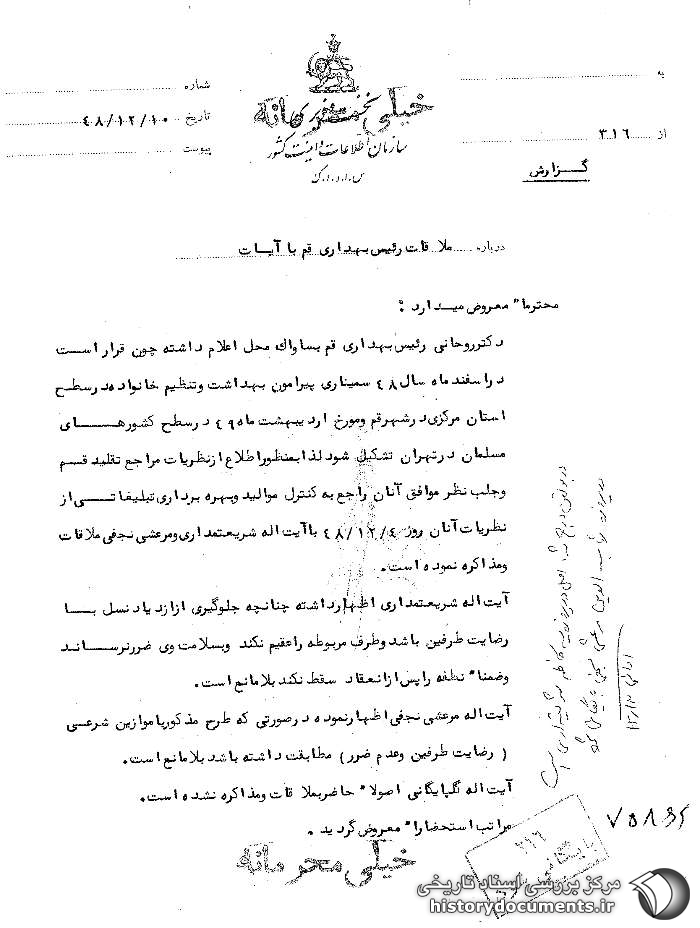 به
شماره
خیلی محرمانه
تاریخ ۴۸/۱۲/۱۰
از ۳۱۶
سازمان اطلاعات و امنیت کشور
پیوست
س.ا.و.ا.ک
گزارش
درباره ملاقات رئیس بهداری قم با آیات
محترما" معروض میدارد :
دکترروحانی رئیس بهداری قم بساواک محل اعلام داشته چون قرار است
در اسفند ماه سال ۴۸ سمیناری پیرامون بهداشت وتنظیم خانواده درسطح
استان مرکزی در شهرقم ومورخ اردیبهشت ماه ۴۹ درسطح کشورهای
مسلمان درتهران تشکیل شود لذا بمنظور اطلاع ازنظریات مراجع تقلید قسم
وجلب نظر موافق آنان راجع به کنترل موالید وبهره برداری تبلیغاتی از
نظریات آنان روز ۴۸/۱۲/۴ با آیت اله شریعتمداری ومرعشی نجفی ملاقات
ومذاکره نموده است.
آیت اله شریعتمداری اظهارداشته چنانچه جلوگیری ازازدیاد نسل با
رضایت طرفین باشد وطرف مربوطه راعقیم نکند وبسلامت وی ضررنرساند
وضمنا" نطفه راپس ازانعقاد سقط نکند بلامانع است.
آیت اله مرعشی نجفی اظهارنموده درصورتی که طرح مذکورباموازین شرعی
( رضایت طرفین وعدم ضرر) مطابقت داشته باشد بلامانع است.
آیت اله گلپایگانی اصولا" حاضربملاقات ومذاکره نشده است.
مراتب استحضارا" معروض گردید .
خیلی محرمانه
۳۱۶
مرکز بررسی اسناد تاریخی
historydocuments.ir